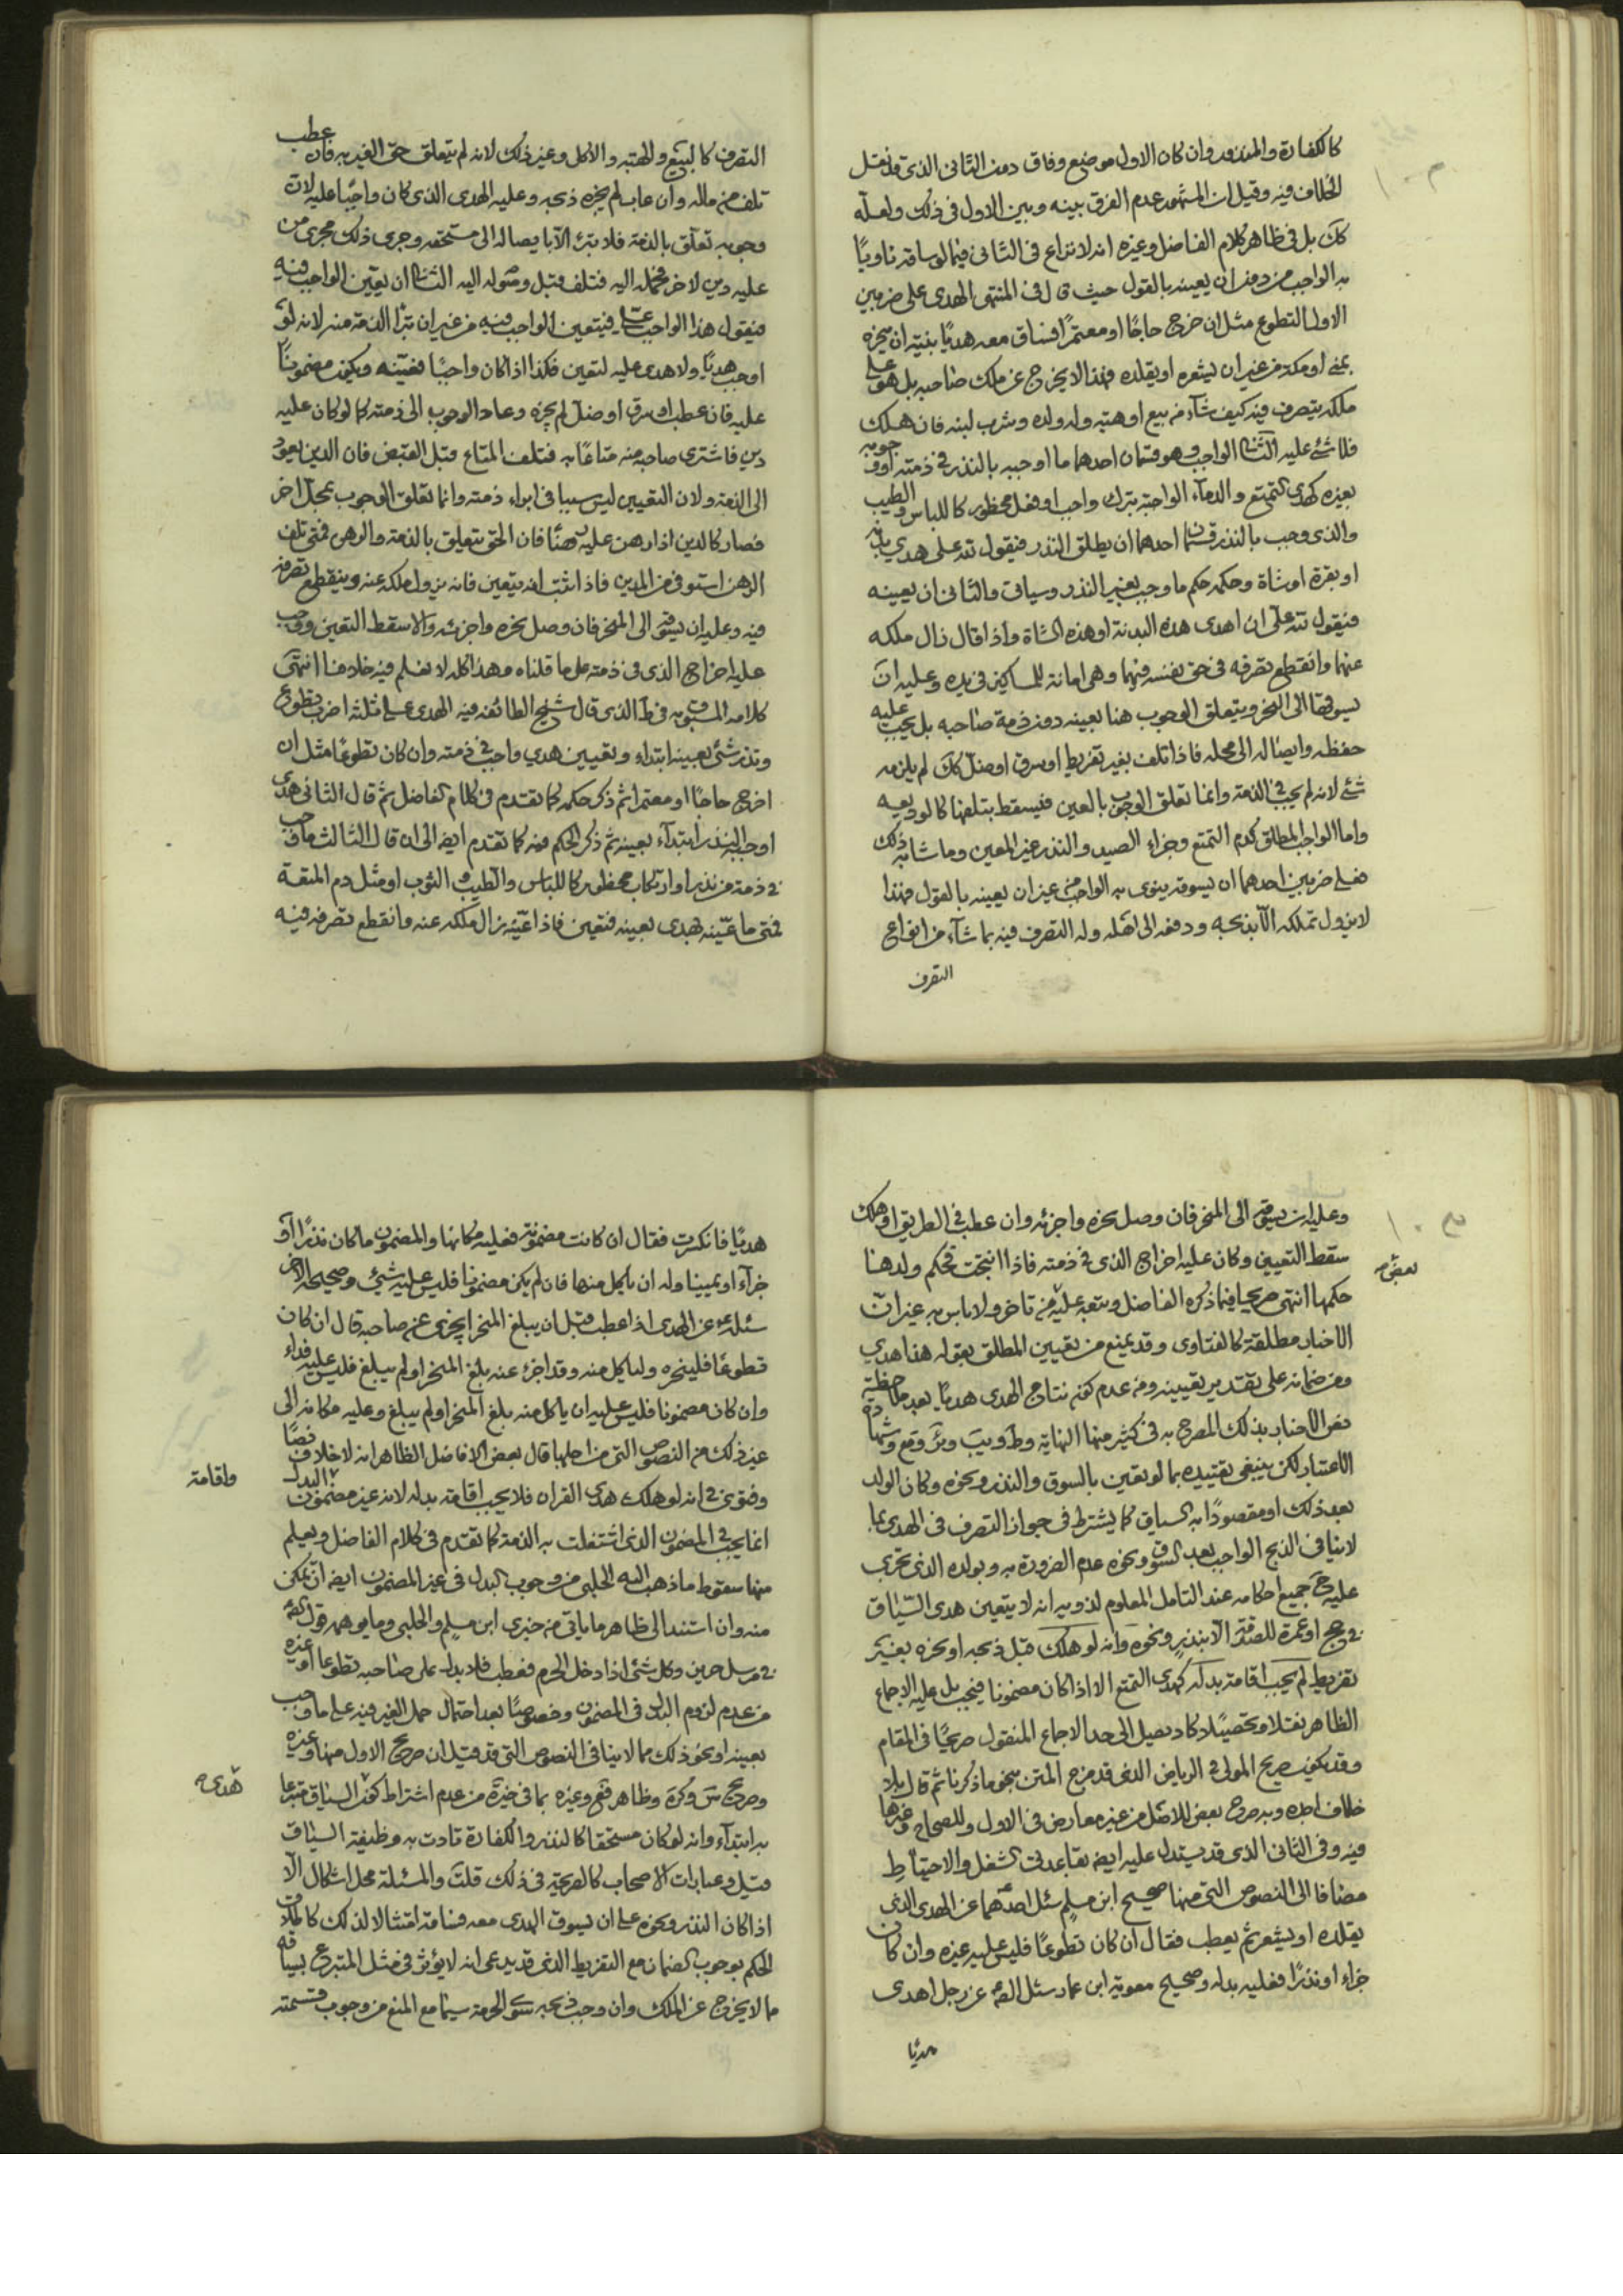 كالكفارة والمنذور وان كان الاول موضع وفاق دون الثانى الذى قد نقل
الخلاف فيه وقيل ان المشهور عدم الفرق بينه وبين الاول فى ذلك ولعله
كك بل فى ظاهر كلام الفاضل وغيره انه لا نزاع فى الثانى فيما لو ساقه ناويًا
به الواجب من دون ان يعينه بالقول حيث قال فى المنتهى الهدى على ضربين
الاول التطوع مثل ان خرج حاجًا او معتمرًا فساق معه هديًا بنية ان ينحره
بمنى او مكة من غير ان يشعره او يقلده فهذا لا يخرج عن ملك صاحبه بل هو على
ملكه يتصرف فيه كيف شآء من بيع او هبة وله ولده وشرب لبنه فان هلك
فلا شئ عليه الثانى الواجب وهو قسمان احدهما ما اوجبه بالنذر فى ذمته او وجوبه
بغيره كهدى التمتع والدمآء الواجبة بترك واجب او فعل محظور كاللباس والطيب
والذى وجب بالنذر قسمان احدهما ان يطلق النذر فيقول لله على هدى بدنة
او بقرة او شاة وحكمه حكم ما وجب بغير النذر وسياتى والثانى ان يعينه
فيقول لله على ان اهدى هذه البدنة او هذه الشاة واذا قال زال ملكه
عنها وانقطع تصرفه فى حق نفسه فيها وهى امانة للمساكين فى يده وعليه ان
يسوقها الى المنحر ويتعلق الوجوب هنا بعينه دون ذمة صاحبه بل يجب عليه
حفظه وايصاله الى محله فاذا تلف بغير تفريط او سرق او ضل كك لم يلزمه
شئ لانه لم يجب فى الذمة وانما تعلق الوجوب بالعين فيسقط بتلفها كالوديعه
واما الواجب المطلق كدم التمتع وجزاء الصيد والنذر غير المعين وما شابه ذلك
فعلى ضربين احدهما ان يسوقه ينوى به الواجب من غير ان يعينه بالقول فهذا
لا يزول تملكه الا بذبحه ودفعه الى اهله وله التصرف فيه بما شآء من انواع
التصرف
التصرف كالبيع والهبة والاكل وغير ذلك لانه لم يتعلق حق الغير به فان عطب
تلف من ماله وان عاب لم يجزه ذبحه وعليه الهدى الذى كان واجبًا عليه لان
وجوبه تعلق بالذمة فلا يبرئ الا بايصاله الى مستحقه وجرى ذلك مجرى من
عليه دين لاخر فحمله اليه فتلف قبل وصوله اليه الثانى ان يعين الواجب فيه
فيقول هذا الواجب على فيتعين الواجب فيه من غير ان تبرأ الذمة منه لانه لو
اوجب هديًا ولا هدى عليه لتعين فكذا اذا كان واجبًا فعينه ويكون مضمونًا
عليه فان عطب او سرق او ضل لم يجزه وعاد الوجوب الى ذمته كما لو كان عليه
دين فاشترى صاحبه منه متاعًا به فتلف المتاع قبل القبض فان الدين يعود
الى الذمة ولان التعيين ليس سببا فى ابراء ذمته وانما تعلق الوجوب بمحل اخر
فصار كالدين اذا رهن عليه رهنًا فان الحق يتعلق بالذمة والرهن فمتى تلف
الرهن استوفى من المدين فاذا ثبت انه يتعين فانه يزول ملكه عنه وينقطع تصرفه
فيه وعليه ان يسوقه الى المنحر فان وصل نحره واجزئه والا سقط التعين ووجب
عليه اخراج الذى فى ذمته على ما قلناه وهذا كله لا نعلم فيه خلافا انتهى
كلامه المسبوق به فى ط الذى قال شيخ الطائفه فيه الهدى على ثلثة اضرب تطوع
ونذر شئ بعينه ابتداء وتعيين هدي واجب فى ذمته وان كان تطوعًا مثل ان
اخرج حاجًا او معتمرا ثم ذكر حكمه كما تقدم فى كلام الفاضل ثم قال الثانى هدى
اوجبه بالنذر ابتدآء بعينه ثم ذكر الحكم فيه كما تقدم ايضا الى ان قال الثالث ما وجب
فى ذمته من نذر او ارتكاب محظور كاللباس والطيب و الثوب او مثل دم المتعة
فمتى ما عينه لهدى بعينه فتعين فاذا عينه زال ملكه عنه وانقطع تصرفه فيه
وعليه ان يسوقه الى المنحر فان وصل نحره واجزئه وان عطب فى الطريق او هلك
سقط التعيين وكان عليه اخراج الذى فى ذمته فاذا انتجت فحكم ولدها
حكمها انتهى صريحا فيما ذكره الفاضل وتبعه عليه من تاخر ولا باس به غير ان
بعض
الاخبار مطلقة كالفتاوى وقد يمنع من تعيين المطلق بقوله هذا هدي
ومن ضمانه على تقدير تعيينه ومن عدم كون نتاج الهدى هديًا بعد ملاحظة
نص الاخبار بذلك المصرح به فى كثير منها النهاية وط ويب وئر وقع وشهادة
الاعتبار لكن ينبغى تقييده بما لو تعين بالسوق والنذر ونحوه وكان الولد
بعد ذلك او مقصودًا به السياق كما يشترط فى جواز التصرف فى الهدى بما
لا ينافى الذبح الواجب بعد السوق ونحوه عدم الضرورة به وبولده الذى تجرى
عليه ح جميع احكامه عند التامل المعلوم لذويه انه لا يتعين هدى السّياق
فى حج او عمرة للصدقة الا بنذر ونحوه وانه لو هلك قبل ذبحه او نحره بغير
تفريط لم يجب اقامة بدله كهدى التمتع الا اذا كان مضمونا فيجب بل عليه الاجماع
الظاهر نقلا وتحصيلا كاد يصل الى حد الاجماع المنقول صريحًا فى المقام
وقد يكون صريح المولى فى الرياض الذى قد مزج المتن بنحو ما ذكرنا ثم قال بلا
خلاف اجده وبه صرح بعض للاصل من غير معارض فى الاول وللصحاح وغيرها
فيه وفى الثانى الذى قد يستدل عليه ايضا بقاعدتى الشغل والاحتياط
مضافا الى النصوص التى منها صحيح ابن مسلم سئل احدهما عن الهدى الذى
يقلده او يشعر ثم يعطب فقال ان كان تطوعًا فليس عليه غيره وان كان
جزاء او نذرًا فعليه بدله وصحيح معوية ابن عمار سئل الصادق عن رجل اهدى
هديًا
هديًا فانكسرت فقال ان كانت مضمونة فعليه مكانها والمضمون ما كان نذرًا او
جزآء او يمينا وله ان ياكل منها فان لم يكن مضمونا فليس عليه شيئ وصحيحه الاخر
سئله ع عن الهدى اذا عطب قبل ان يبلغ المنحر ايجزى عن صاحبه قال ان كان
تطوعًا فلينحره ولياكل منه وقد اجزء عنه بلغ المنحر او لم يبلغ فليس عليه فداء
وان كان مضمونا فليس عليه ان ياكل منه بلغ المنحر او لم يبلغ وعليه مكانه الى
غير ذلك من النصوص التى من اجلها قال بعض الافاضل الظاهر انه لا خلاف نصًا
وفتوى فى انه لو هلك هدى القران فلا يجب اقامة بدله لانه غير مضمون البدل
واقامة
انما يجب فى المضمون الذى اشتغلت به الذمة كما تقدم فى كلام الفاضل ويعلم
منها سقوط ما ذهب اليه الحلبى من وجوب البدل فى غير المضمون ايضا ان تمكن
منه وان استند الى ظاهر ما ياتى من خبرى ابن مسلم والحلبى وما يوهمه قوله
فى مرسل حريز وكل شئ اذا دخل الحرم فعطب فلا بدل على صاحبه تطوعا او غيره
من عدم لزوم البدل فى المضمون وخصوصًا بعد احتمال حمل الغير فيه على ما وجب
بعينه او نحو ذلك مما لا ينافى النصوص التى قد قيل ان صريح الاول منها وغيره
وصريح س وكره وظاهر فع وغيره بما فى خيرة من عدم اشتراط كون السياق متبرعا
هدى
به ابتدآء وانه لو كان مستحقا كالنذر والكفارة تادت به وظيفة السياق
قيل وعبارات الاصحاب كالصريحة فى ذلك قلت والمسئلة محل اشكال الا
اذا كان النذر ونحوه على ان يسوق الهدى معه فساقه امتثالا لذلك كاطلاق
الحكم بوجوب الضمان مع التفريط الذى قد يدعى انه لا يؤثر فى مثل المتبرع بسياقه
ما لا يخرج عن الملك وان وجب ذبحه سوى الحرمة سيما مع المنع من وجوب قسمته